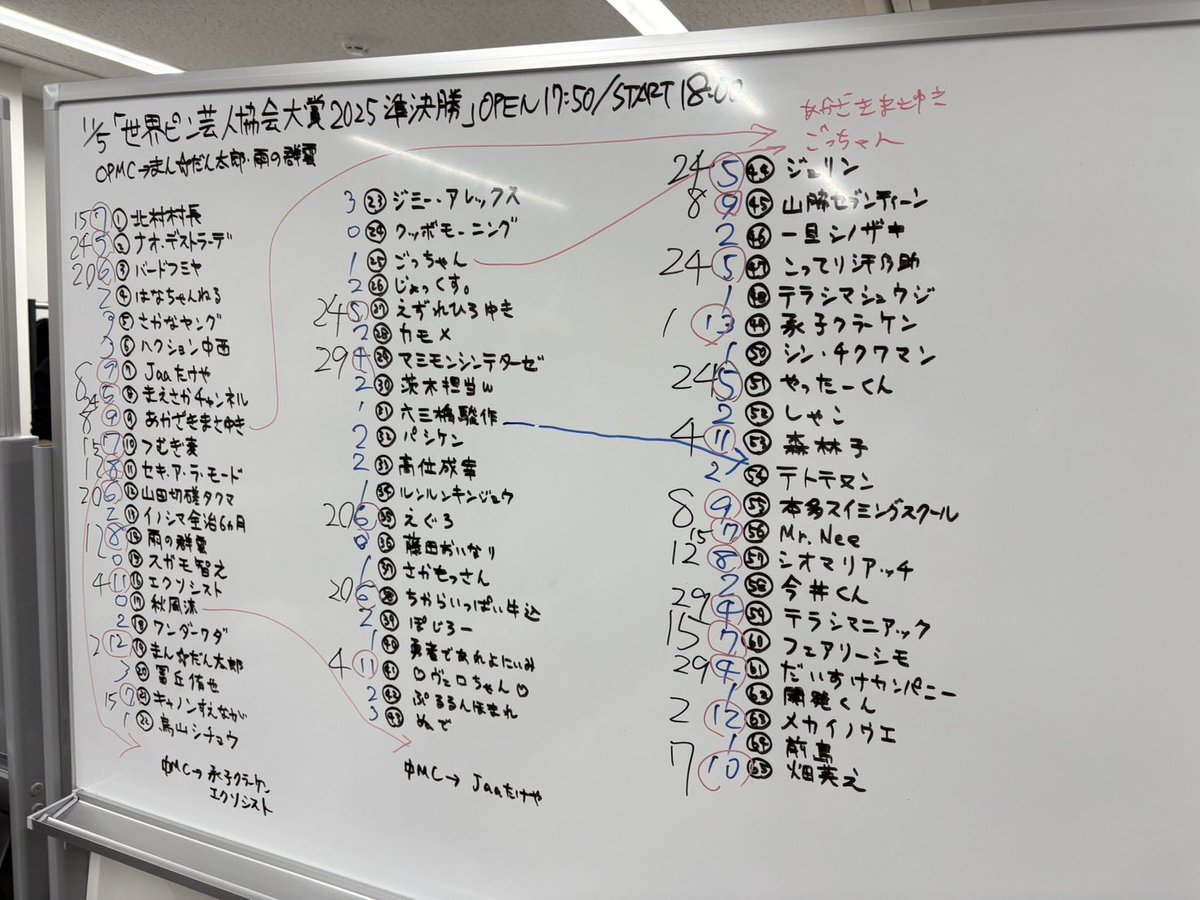 11/5「世界ピン芸人協会大賞2025準決勝」OPEN 17:50/START 18:00
OPMC→まん☆だん太郎・雨の群雲
15 7 ① 北村村長
24 5 ② ナオ・デストラーデ
20 6 ③ バードフミヤ
2 ④ はなちゃんねる
3 ⑤ さかなヤング
3 ⑥ ハクション中西
8 9 ⑦ Jaaたけや
24 5 ⑧ まえさかチャンネル
8 9 ⑨ あかざきまさゆき
15 7 ⑩ つむぎ麦
12 8 ⑪ セキ・ア・ラ・モード
20 6 ⑫ 山田切磋タクマ
2 ⑬ イノシマ全治6ヵ月
12 8 ⑭ 雨の群雲
0 ⑮ スガモ智之
4 11 ⑯ エクソシスト
0 ⑰ 秋風流
2 ⑱ ワンダークダ
2 12 ⑲ まん☆だん太郎
3 ⑳ 冨丘侑也
15 7 ㉑ キャノンすえながが
1 ㉒ 鳥山シチョウ
中MC→承子クラーケン
エクソシスト
3 ㉓ ジミー・アレックス
0 ㉔ クッポモーニング
1 ㉕ ごっちゃん
2 ㉖ じょっくす。
24 5 ㉗ えずれひろゆき
2 ㉘ カモメ
29 4 ㉙ マミモンシンテターゼ
2 ㉚ 茨木担当w
1 ㉛ 六三橋駿作
2 ㉜ パシケン
2 ㉝ 高位成幸
1 ㉞ ルンルンキンジョウ
20 6 ㉟ えぐろ
0 ㊱ 藤田おいなり
1 ㊲ さかもっさん
20 6 ㊳ ちからいっぱい牛込
2 ㊴ ぽじろー
1 ㊵ 勇者であれよにいみ
4 11 ㊶ ♡ヴェロちゃん♡
2 ㊷ ぷるるんほまれ
3 ㊸ ぬで
中MC→Jaaたけや
あかざきまさゆき
ごっちゃん
24 5 ㊹ ジェリン
8 9 ㊺ 山脇セブンティーン
2 ㊻ 一旦シノザキ
24 5 ㊼ こってり汗乃助
1 ㊽ テラシマシュウジ
1 13 ㊾ 承子クラーケン
1 ㊿ シン・チクワマン
24 5 51 やったーくん
2 52 しゃこ
4 11 53 森林子
2 54 テトテヌン
8 9 55 本多スイミングスクール
15 7 56 Mr.Nee
12 8 57 シオマリアッチ
2 58 今井くん
29 4 59 テラシマニアック
15 7 60 フェアリーシモ
29 4 61 だいすけカンパニー
1 62 開発くん
2 12 63 メカイノウエ
1 64 前島
7 10 65 畑英之